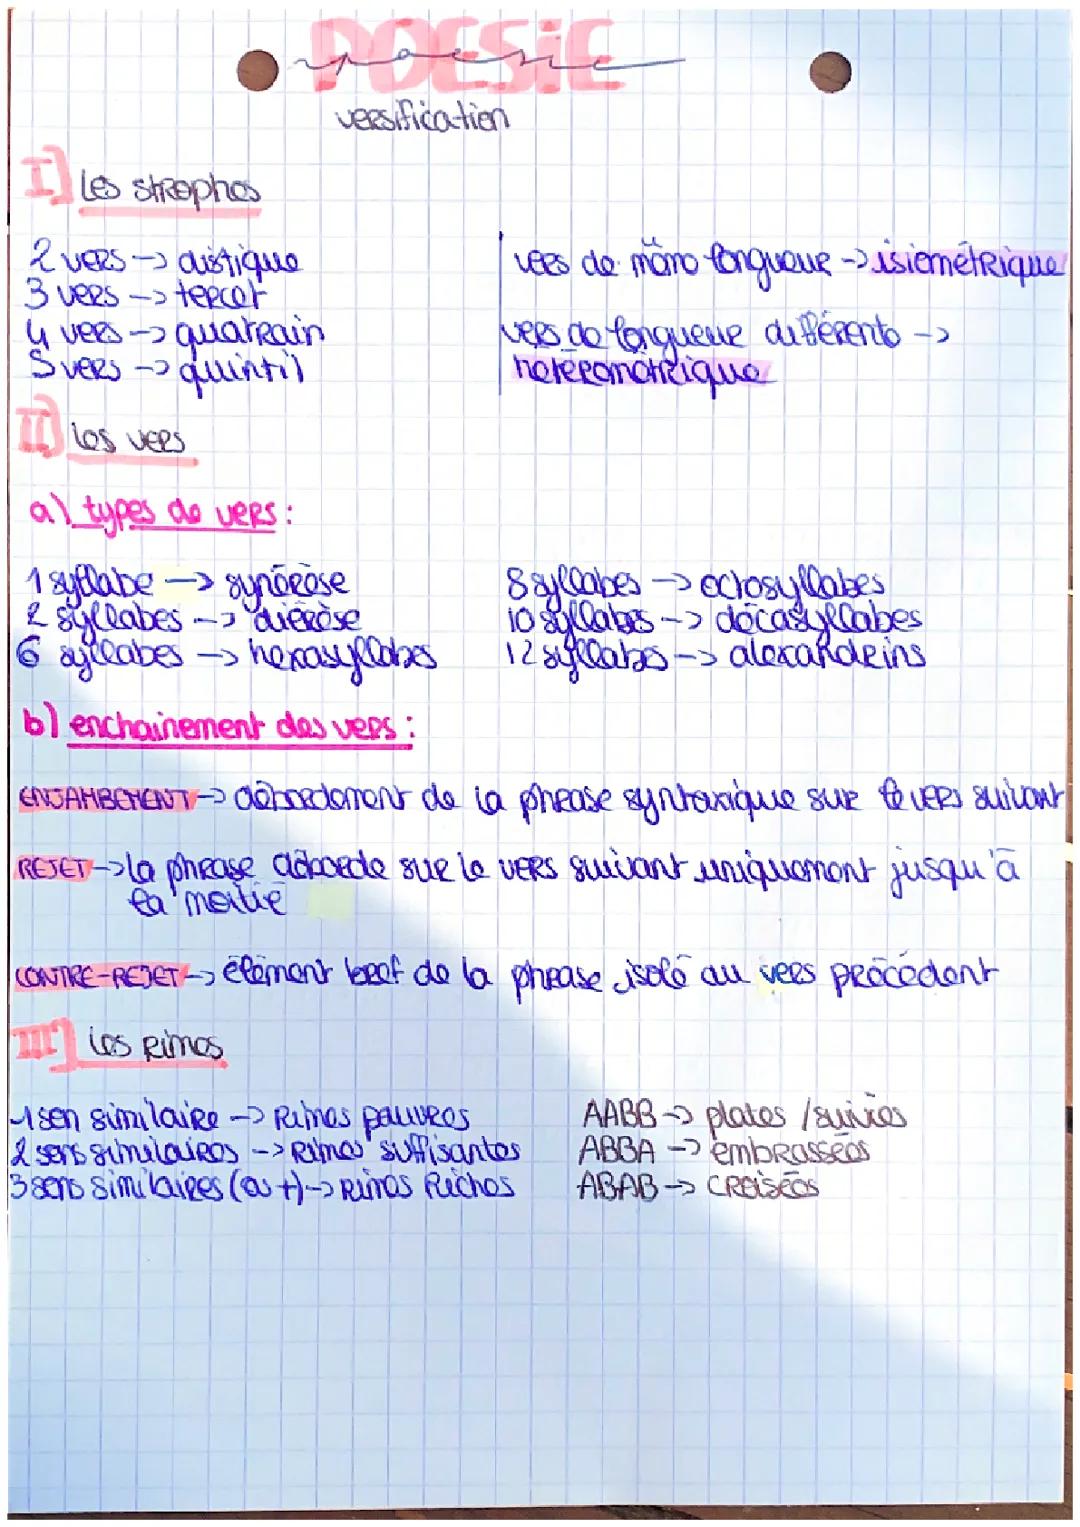 POESIE
poesie
versification
I] Les strophes
2 vers -> distique
3 vers -> tercet
4 vers -> quatrain
5 vers -> quintil
vers de même longueur -> isiométrique
vers de longueur différente ->
hétérométrique
II] les vers
a) types de vers :
1 syllabe -> synérèse
2 syllabes -> diérèse
6 syllabes -> hexasyllabes
8 syllabes -> octosyllabes
10 syllabes -> décasyllabes
12 syllabes -> alexandrins
b) enchainement des vers :
ENJAMBEMENT -> débordement de la phrase syntaxique sur le vers suivant
REJET -> la phrase déborde sur le vers suivant uniquement jusqu'à
la moitié
CONTRE-REJET -> élément bref de la phrase isolé au vers précédent
III] les rimes
1 son similaire -> rimes pauvres
2 sons similaires -> rimes suffisantes
3 sons similaires (ou +) -> rimes riches
AABB -> plates / suivies
ABBA -> embrassées
ABAB -> croisées